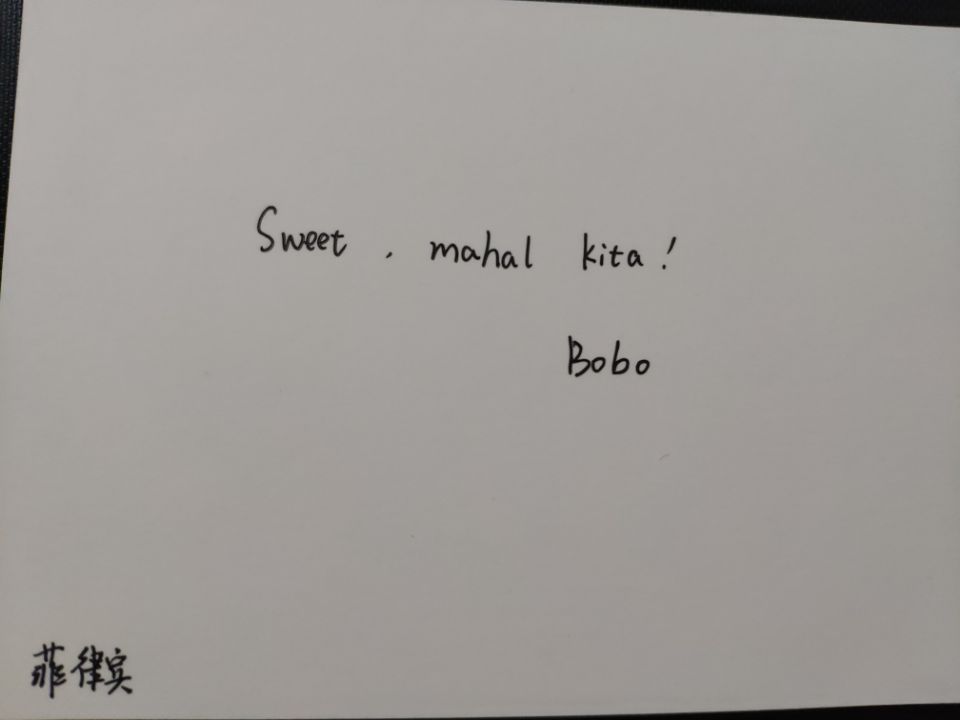 Sweet , mahal kita!
Bobo
菲律宾